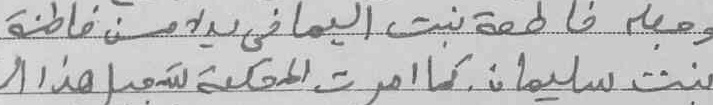 وجعله فاطمة بنت اليمافي بدلا من فاطمة
بنت سليمان. كما امرت المحكمة بتسجيل هذا ال